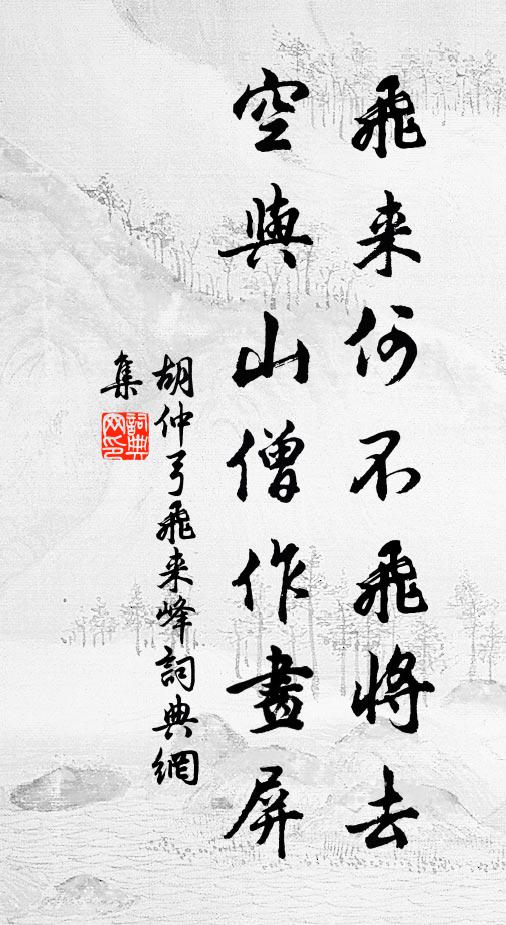 飛来何不飛將去
空與山僧作畫屏
胡仲弓飛来峰詞典網
集
詞典
网印